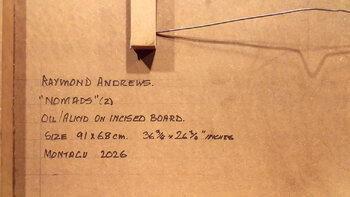 RAYMOND ANDREWS.
"NOMADS" (2)
OIL/ALKYD ON INCISED BOARD.
SIZE 91 x 68 cm. 36 3/4 x 26 3/4 " INCHES
MONTAGU 2026